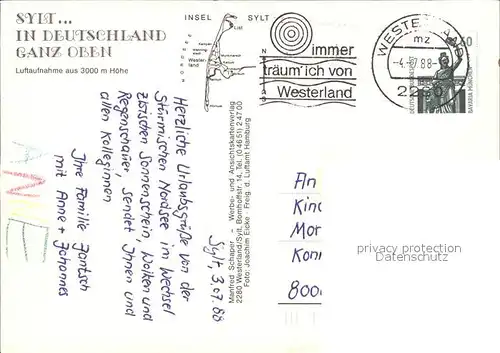 SYLT...
IN DEUTSCHLAND
GANZ OBEN
Luftaufnahme aus 3000 m Höhe
INSEL SYLT
List
Kampen
Westerland
immer
träum' ich von
Westerland
WESTERLAND
mz
-4.-7.88-
2280
60
DEUTSCHE BUNDESPOST
BAVARIA MÜNCHEN
Manfred Schaper - Werbe- und Ansichtskartenverlag
2280 Westerland/Sylt, Bomhoffstr. 14, Tel. (0 46 51) 2 47 00
Foto: Joachim Eicke - Freig. d. Luftamt Hamburg
Sylt, 3.07.88
Herzliche Urlaubsgrüße von der
Stürmischen Nordsee im Wechsel
zwischen Sonnenschein, Wolken und
Regenschauer, sendet Ihnen und
allen Kolleginnen
Ihre Familie Jantsch
mit Anne + Johannes
An
Kin
Mor
Kon
800
privacy protection
Datenschutz